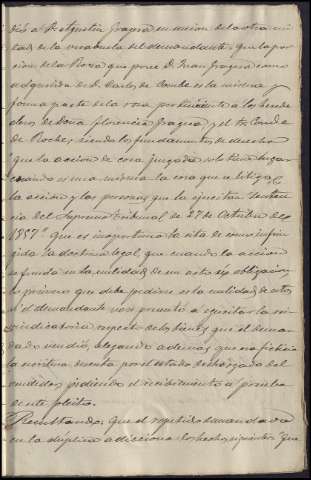 dió a Dn Agustin Fragua en union del otra mi-
tad, es la vicabuela del demandante; que la por-
cion de la Rosa que posee D. Juan Fragua como
adquirida de D. Carlos de Conde es la misma y
forma parte de la rosa perteneciente a los herede-
ros de Doña Florencia Fragua y el Sr. Conde
de Roche, siendo los fundamentos de derecho
que la accion de cosa juzgada solo tiene lugar
cuando es una misma la cosa que se litiga,
la accion y las personas que la ejercitan Senten-
cia del Supremo Tribunal de 27 de Octubre de
1857: que es inoportuna la cita de como infrin-
gida la doctrina legal, que cuando la accion
se funda en la nulidad de un acto u obligacion
lo primero que debe pedirse es la nulidad de estos
el demandante no se presentó a ejercitar la rei-
vindicatoria respecto de los bienes que el deman-
dado vendió, alegando ademas que no ficticia
la escritura de venta por el estado de
vendidas pidiendo el recibimiento a prueba
de este pleito.
Resultando: Que el repetido demandado
en la dúplica adiciona los hechos siguientes: que